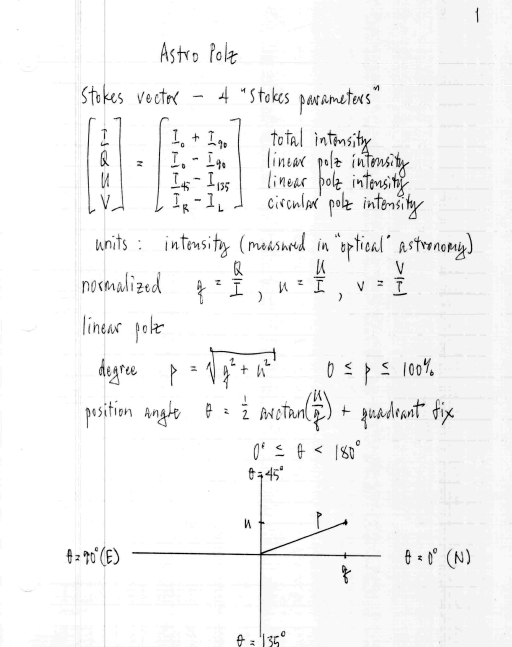 1
Astro Polz
Stokes vector – 4 "Stokes parameters"
[I] = [I₀ + I₉₀] total intensity
[Q] [I₀ - I₉₀] linear polz intensity
[U] [I₄₅ - I₁₃₅] linear polz intensity
[V] [I_R - I_L] circular polz intensity
units : intensity (measured in "optical" astronomy)
normalized q = Q/I , u = U/I , v = V/I
linear polz
degree p = √(q² + u²) 0 ≤ p ≤ 100%
position angle θ = ½ arctan(u/q) + quadrant fix
0° ≤ θ < 180°
θ = 45°
u p
θ = 90° (E) θ = 0° (N)
q
θ = 135°